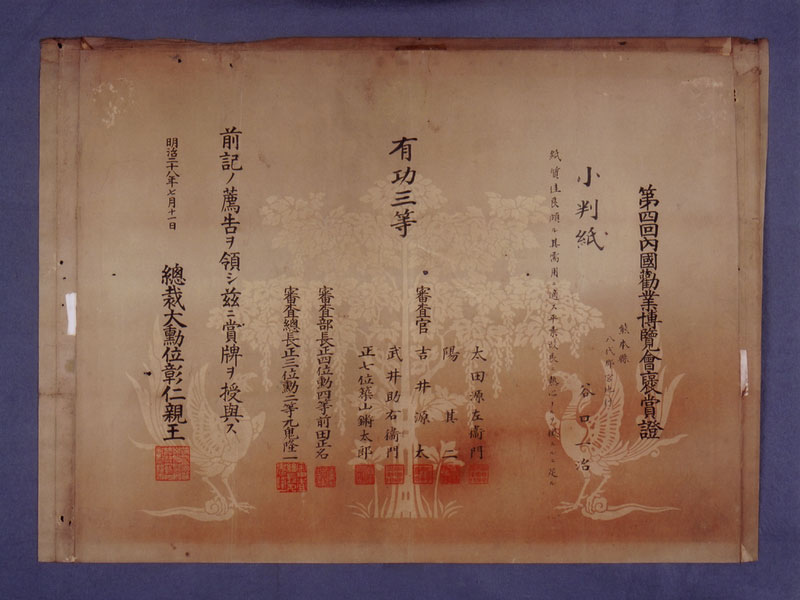 第四回內國勸業博覽會褒賞證
熊本縣
八代郡宮地村
谷口一治
小判紙
紙質佳良頗ル其需用ニ適ス平素改良ニ熱心
有功三等
太田源左衞門
陽其二
審査官 吉井源太
武井助右衞門
正七位 築山鏘太郎
審査部長正四位勳四等前田正名
審査總長正三位勳二等九鬼隆一
前記ノ薦告ヲ領シ茲ニ賞牌ヲ授與ス
明治二十八年七月十一日
總裁大勳位彰仁親王